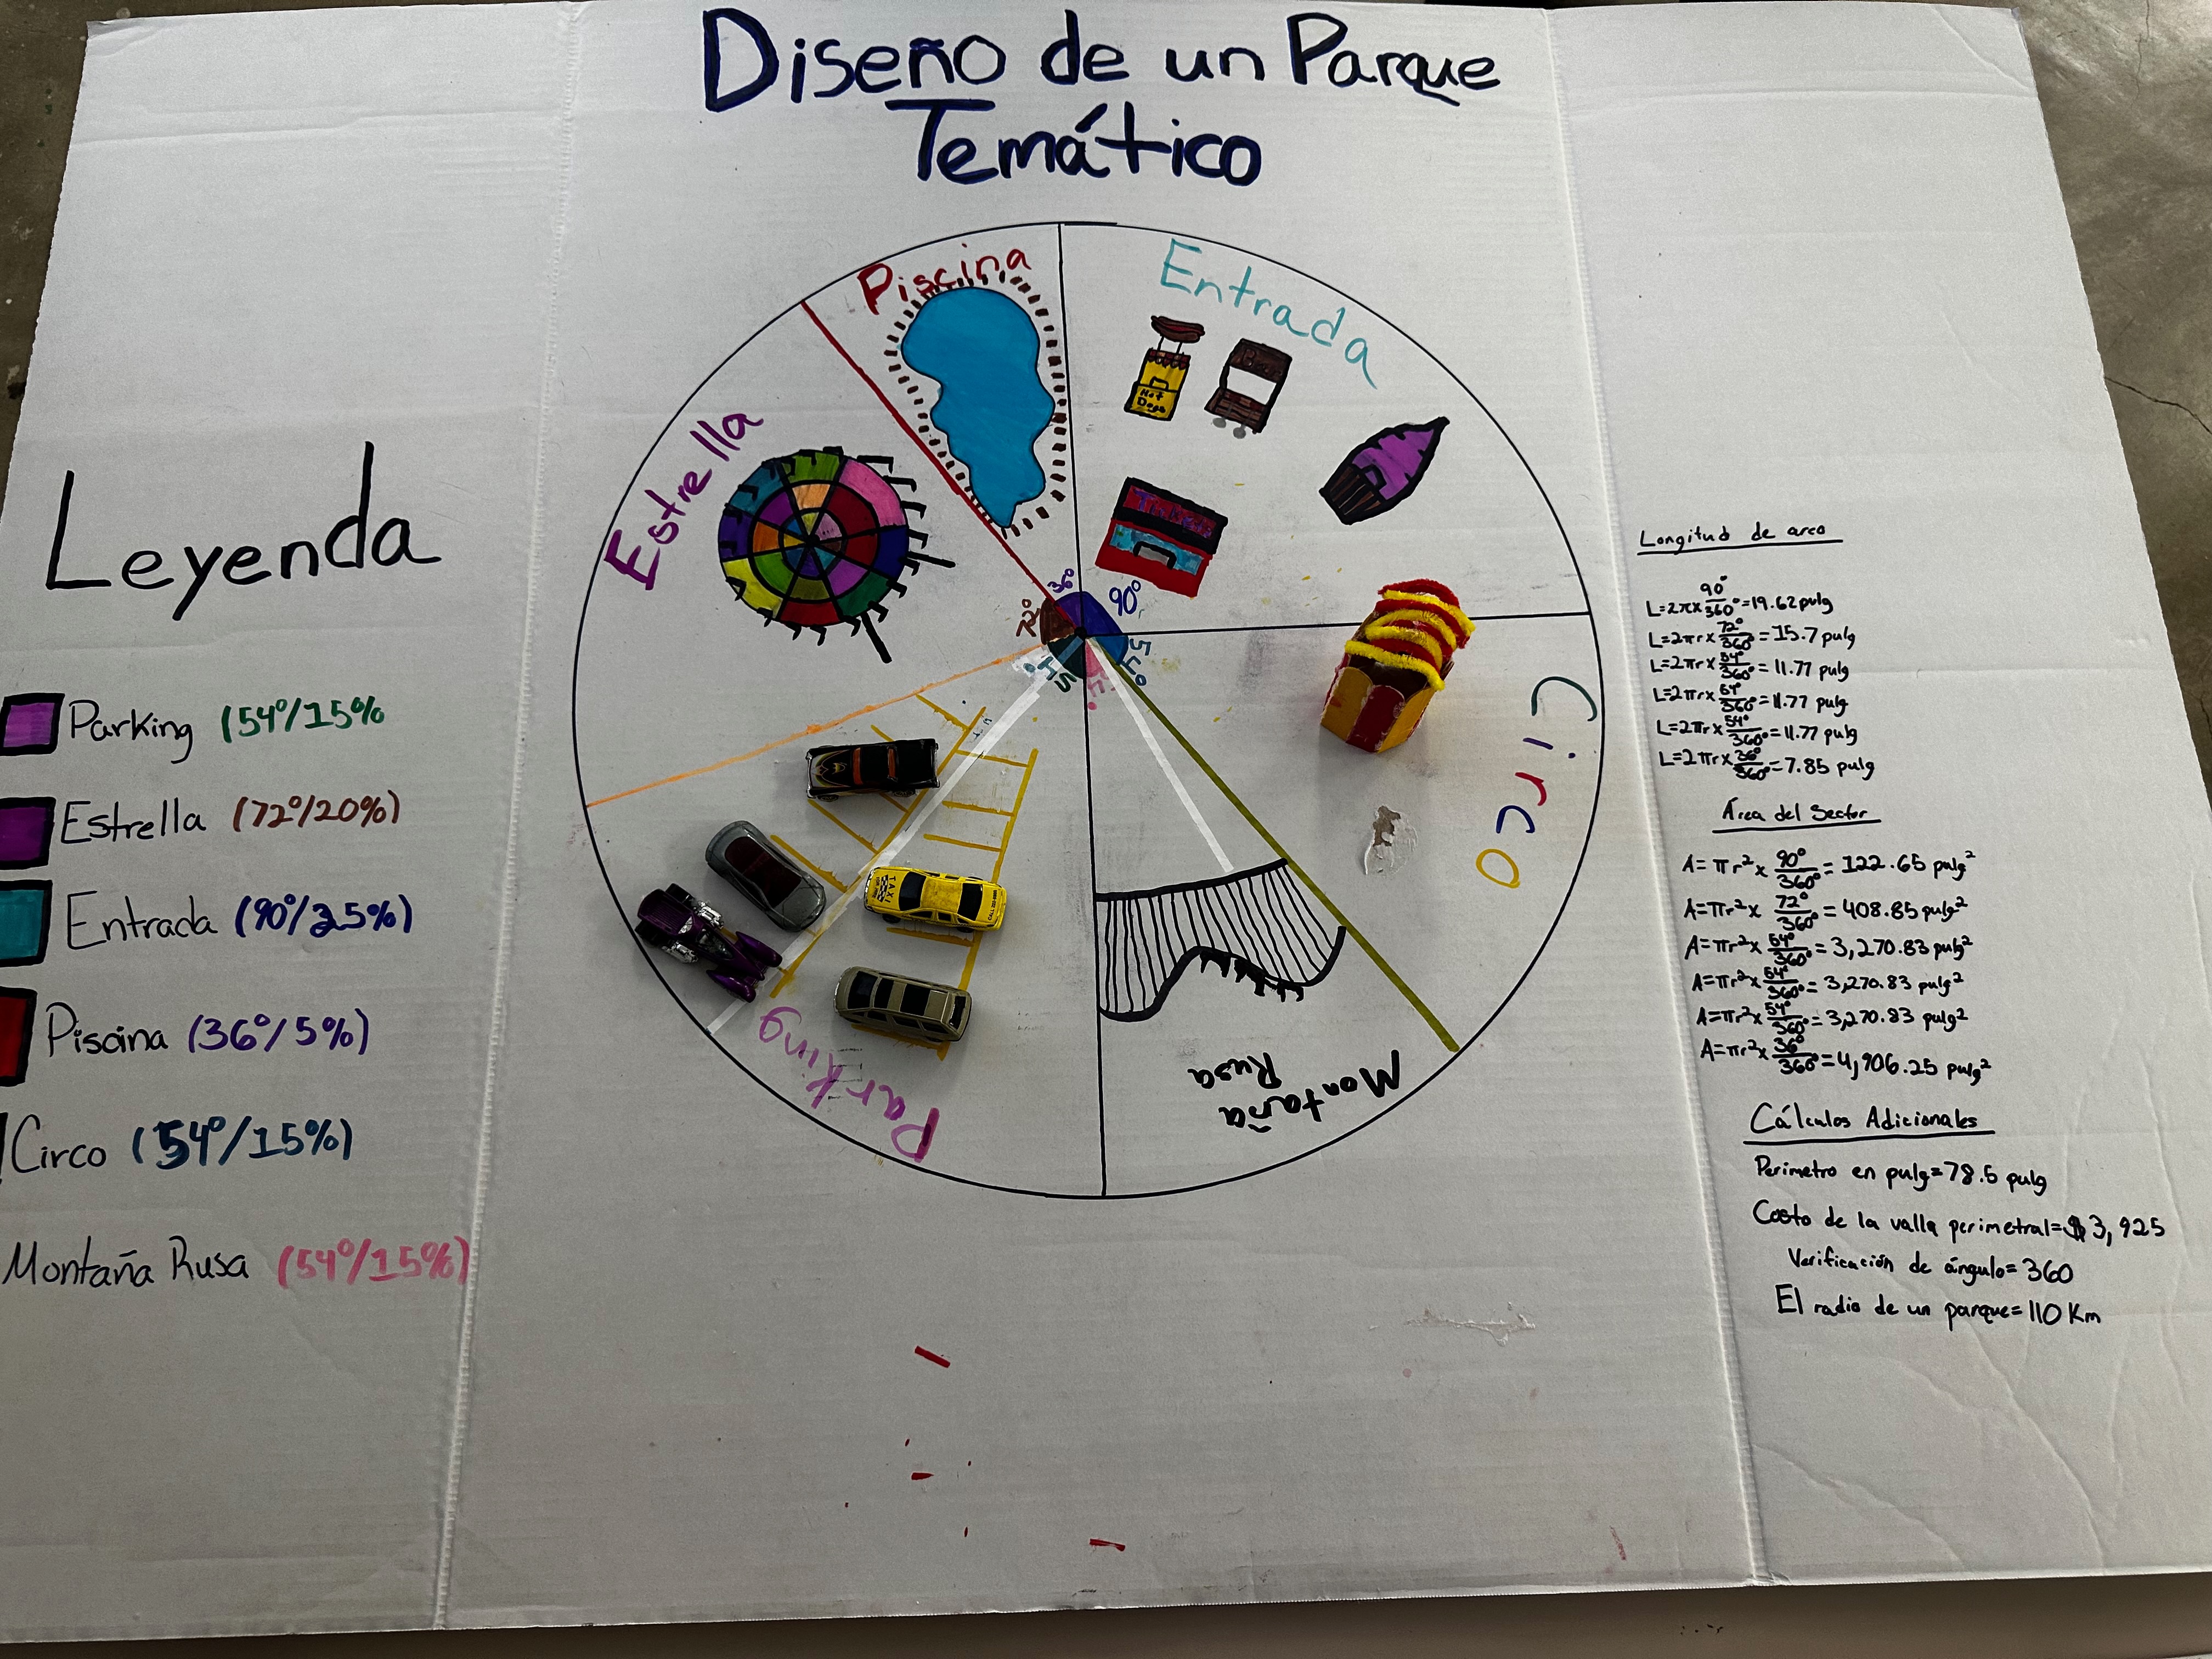 Diseño de un Parque
Temático
Leyenda
Parking (54°/15%
Estrella (72°/20%)
Entrada (90°/25%)
Piscina (36°/5%)
Circo (54°/15%)
Montaña Rusa (54°/15%)
Piscina
Entrada
Hot
Dogs
Estrella
36°
90°
72°
54°
Circo
TAXI
Parking
Montaña
Rusa
Longitud de arco
L=2πx 90°/360°=19.62 pulg
L=2πrx 72°/360°=15.7 pulg
L=2πrx 54°/360°=11.77 pulg
L=2πrx 54°/360°=11.77 pulg
L=2πrx 54°/360°=11.77 pulg
L=2πrx 36°/360°=7.85 pulg
Área del Sector
A=πr²x 90°/360°=122.65 pulg²
A=πr²x 72°/360°=408.85 pulg²
A=πr²x 54°/360°=3,270.83 pulg²
A=πr²x 54°/360°=3,270.83 pulg²
A=πr²x 54°/360°=3,270.83 pulg²
A=πr²x 36°/360°=4,906.25 pulg²
Cálculos Adicionales
Perimetro en pulg=78.5 pulg
Costo de la valla perimetral=$3,925
Verificación de ángulo=360
El radio de un parque=110 Km